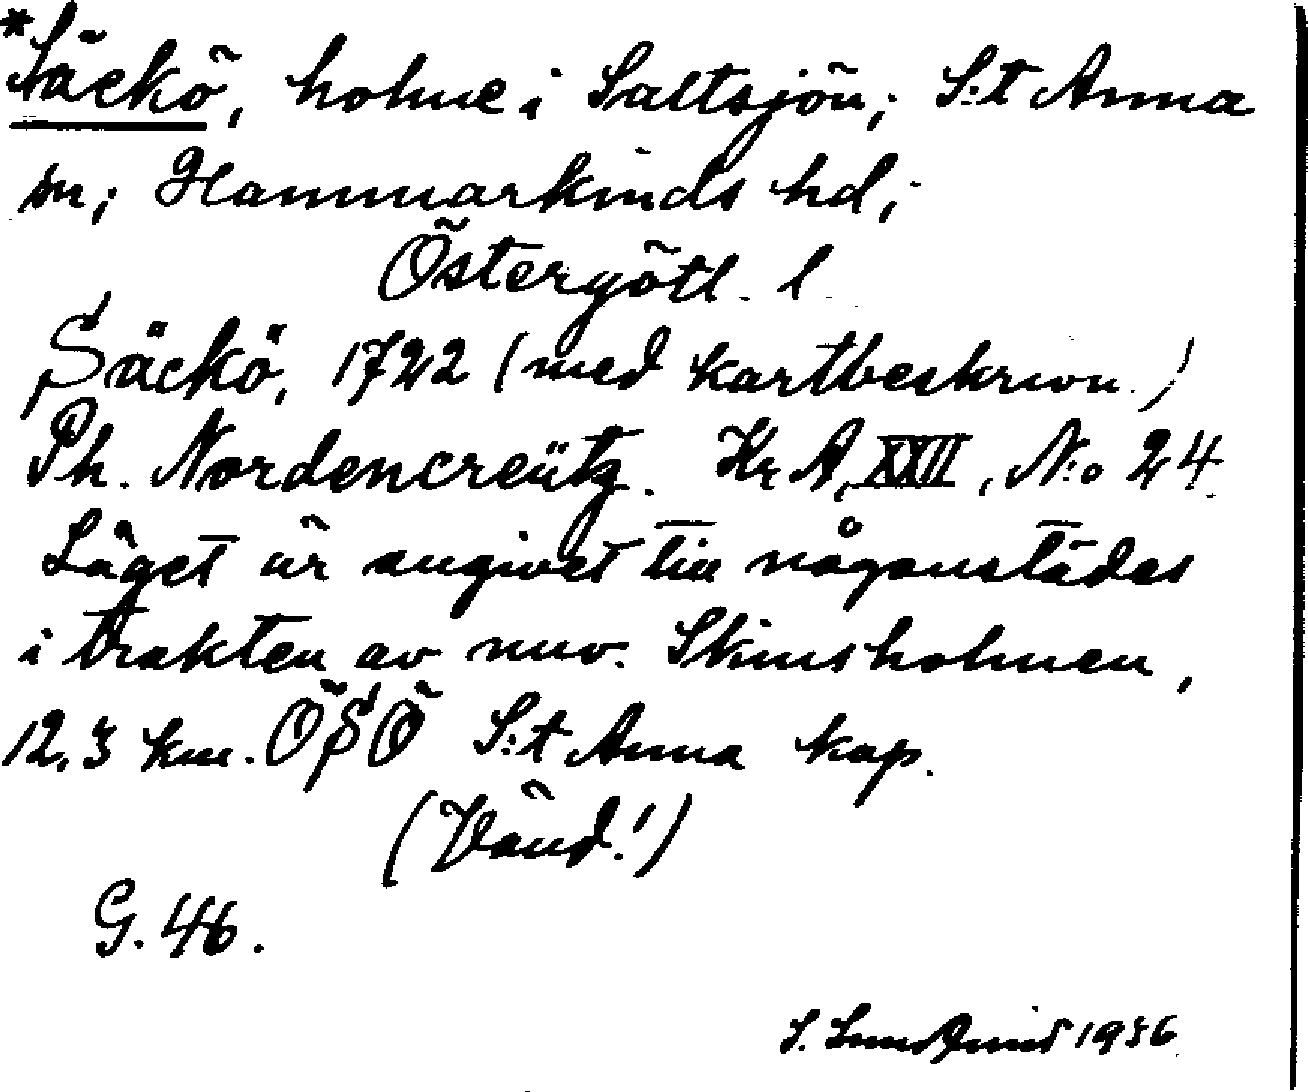 *Säckö, holme i Saltsjön; S:t Anna
sn; Hammarkinds hd;
Östergötl. l
Säckö, 1722 (med kartbeskrivn.)
Ph. Nordencreütz. Kr A, XXII, N:o 24
Läget är angivet till någonstädes
i trakten av nuv. Skinsholmen,
12,3 km. ÖSÖ S:t Anna kap.
(Vänd!)
G. 46.
S. 1936